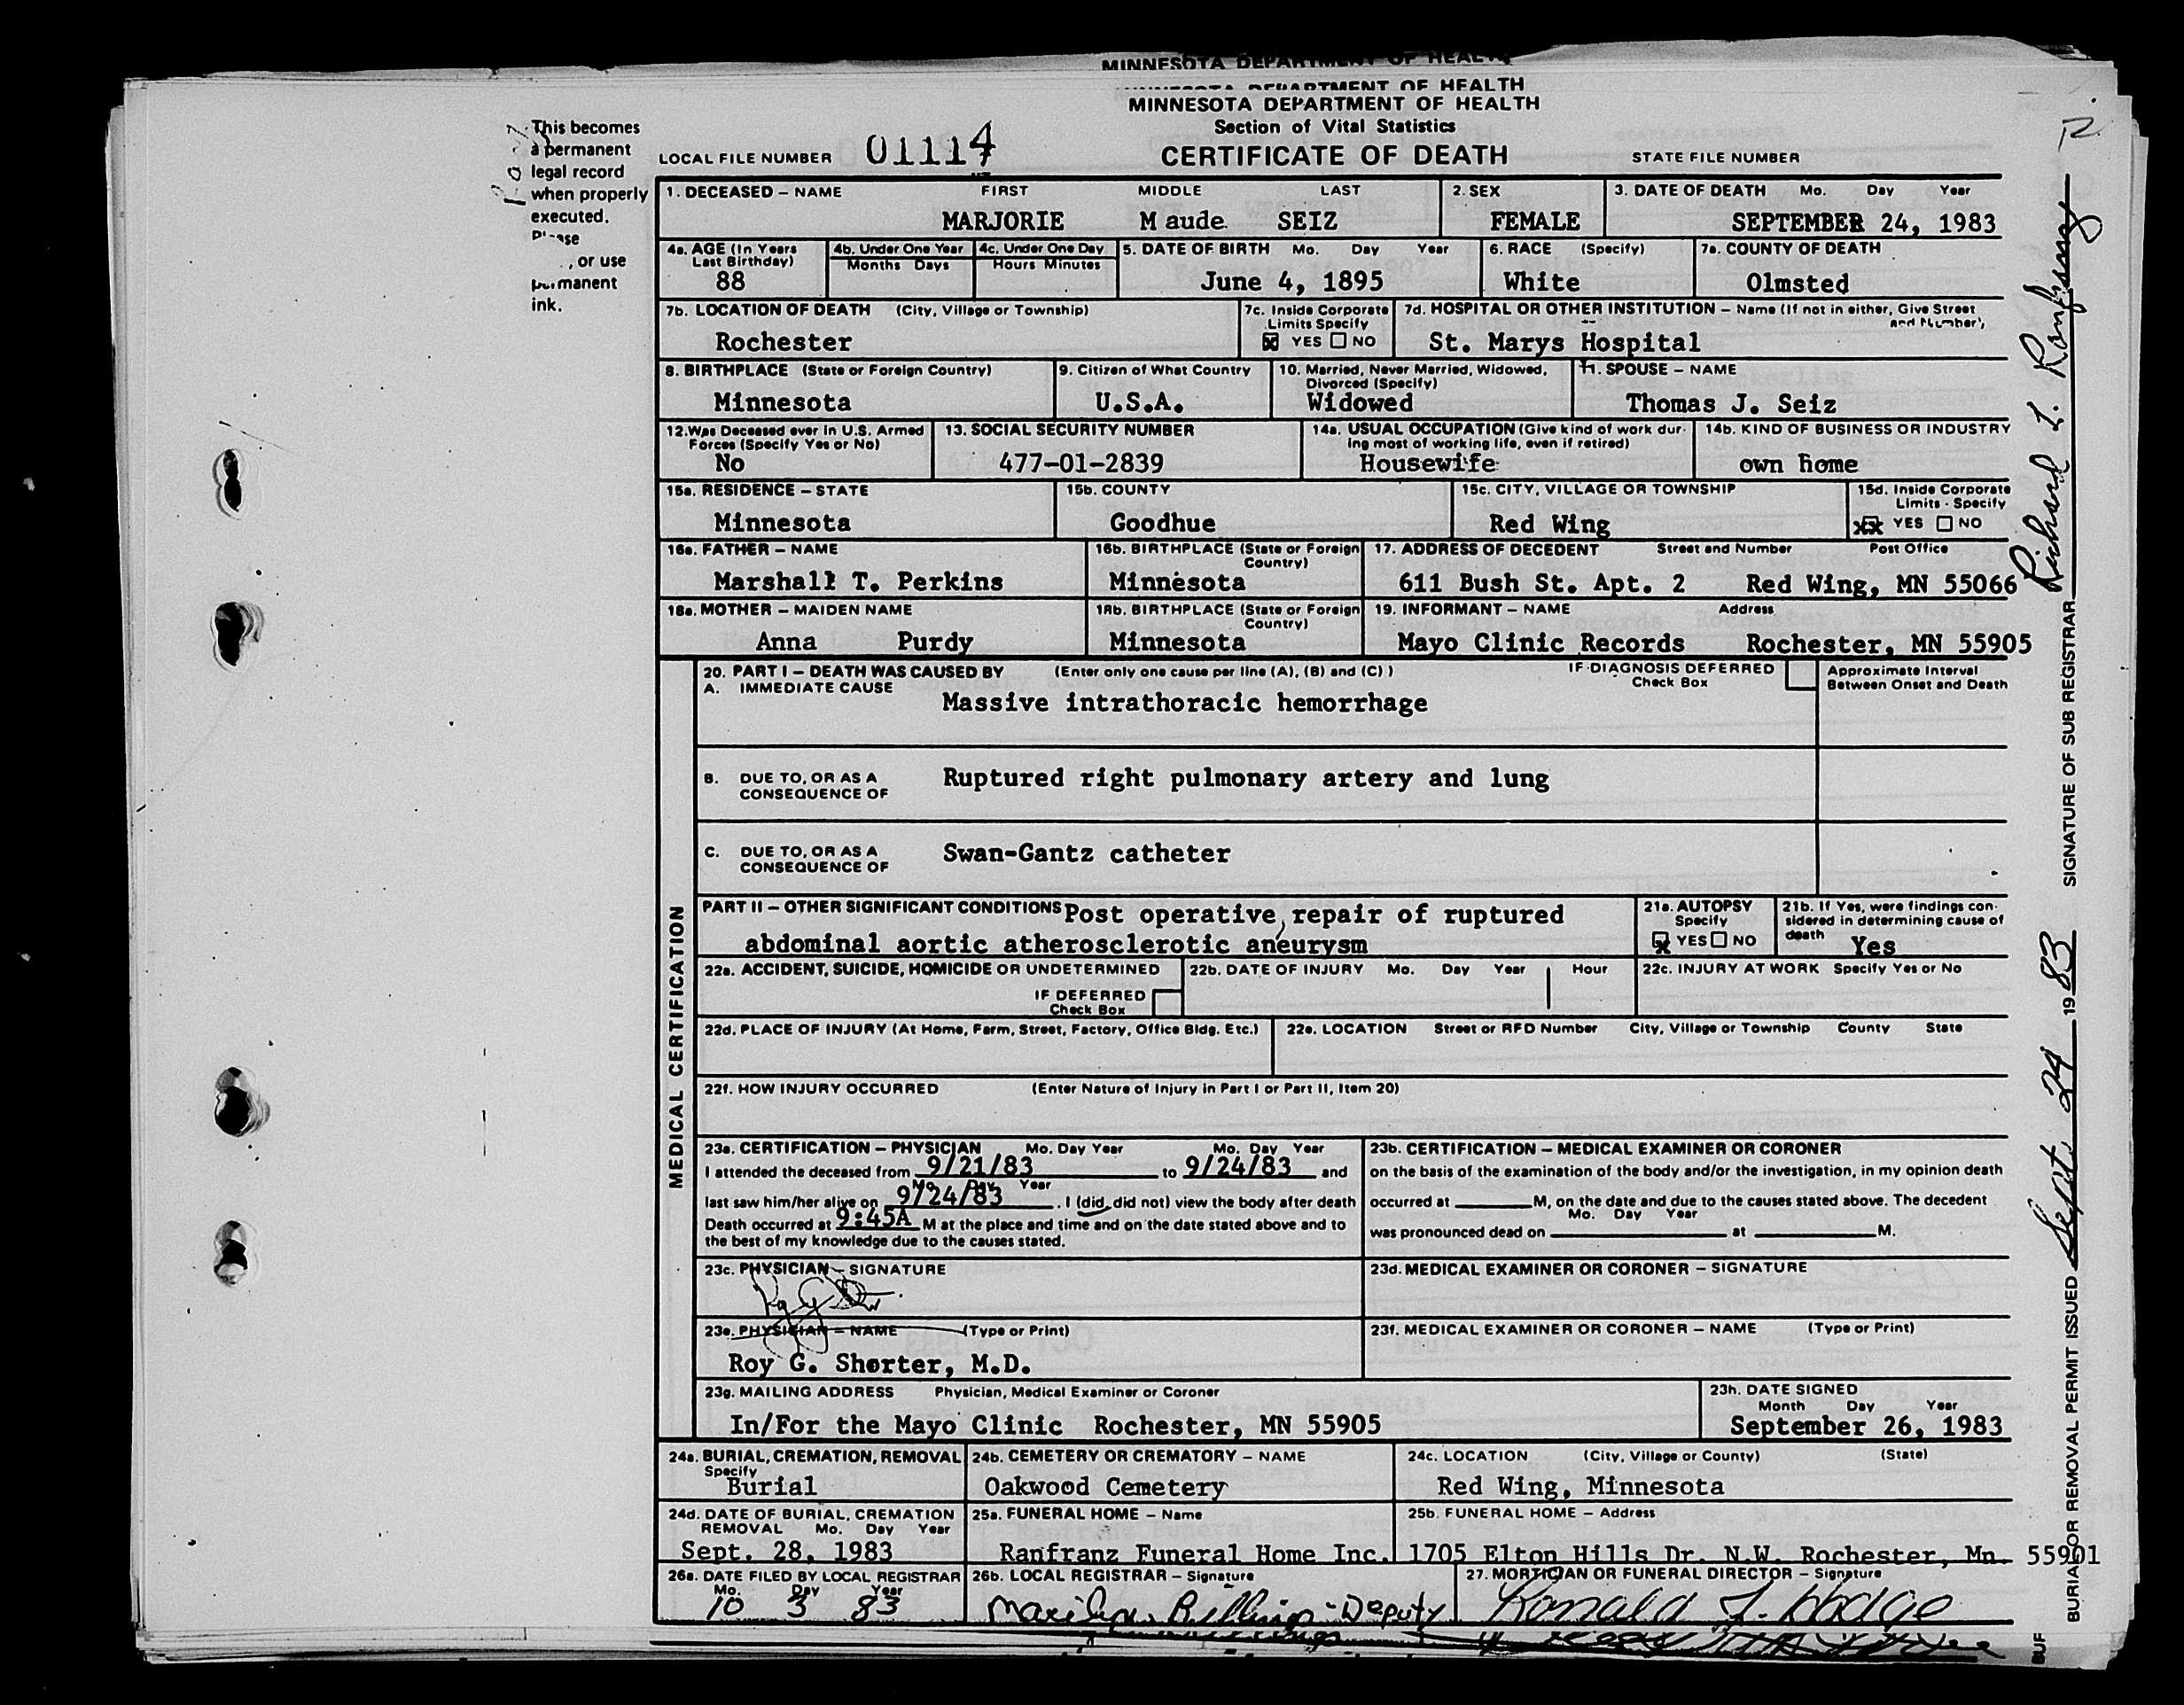 MINNESOTA DEPARTMENT OF HEALTH
DEPARTMENT OF HEALTH
MINNESOTA DEPARTMENT OF HEALTH
Section of Vital Statistics
CERTIFICATE OF DEATH
This becomes
a permanent
legal record
when properly
executed.
, or use
permanent
ink.
LOCAL FILE NUMBER 01114
STATE FILE NUMBER
1. DECEASED – NAME FIRST MIDDLE LAST 2. SEX 3. DATE OF DEATH Mo. Day Year
MARJORIE Maude SEIZ FEMALE SEPTEMBER 24, 1983
4a. AGE (In Years Last Birthday) 4b. Under One Year Months Days 4c. Under One Day Hours Minutes 5. DATE OF BIRTH Mo. Day Year 6. RACE (Specify) 7a. COUNTY OF DEATH
88 June 4, 1895 White Olmsted
7b. LOCATION OF DEATH (City, Village or Township) 7c. Inside Corporate Limits Specify 7d. HOSPITAL OR OTHER INSTITUTION – Name (If not in either, Give Street and Number)
Rochester ☒ YES ☐ NO St. Marys Hospital
8. BIRTHPLACE (State or Foreign Country) 9. Citizen of What Country 10. Married, Never Married, Widowed, Divorced (Specify) 11. SPOUSE – NAME
Minnesota U.S.A. Widowed Thomas J. Seiz
12. Was Deceased ever in U.S. Armed Forces (Specify Yes or No) 13. SOCIAL SECURITY NUMBER 14a. USUAL OCCUPATION (Give kind of work during most of working life, even if retired) 14b. KIND OF BUSINESS OR INDUSTRY
No 477-01-2839 Housewife own home
15a. RESIDENCE – STATE 15b. COUNTY 15c. CITY, VILLAGE OR TOWNSHIP 15d. Inside Corporate Limits - Specify
Minnesota Goodhue Red Wing ☒ YES ☐ NO
16a. FATHER – NAME 16b. BIRTHPLACE (State or Foreign Country) 17. ADDRESS OF DECEDENT Street and Number Post Office
Marshall T. Perkins Minnesota 611 Bush St. Apt. 2 Red Wing, MN 55066
18a. MOTHER – MAIDEN NAME 18b. BIRTHPLACE (State or Foreign Country) 19. INFORMANT – NAME Address
Anna Purdy Minnesota Mayo Clinic Records Rochester, MN 55905
MEDICAL CERTIFICATION
20. PART I – DEATH WAS CAUSED BY (Enter only one cause per line (A), (B) and (C) ) IF DIAGNOSIS DEFERRED Check Box Approximate Interval Between Onset and Death
A. IMMEDIATE CAUSE
Massive intrathoracic hemorrhage
B. DUE TO, OR AS A CONSEQUENCE OF Ruptured right pulmonary artery and lung
C. DUE TO, OR AS A CONSEQUENCE OF Swan-Gantz catheter
PART II – OTHER SIGNIFICANT CONDITIONS Post operative, repair of ruptured
abdominal aortic atherosclerotic aneurysm
21a. AUTOPSY Specify ☒ YES ☐ NO
21b. If Yes, were findings considered in determining cause of death Yes
22a. ACCIDENT, SUICIDE, HOMICIDE OR UNDETERMINED IF DEFERRED Check Box 22b. DATE OF INJURY Mo. Day Year Hour 22c. INJURY AT WORK Specify Yes or No
22d. PLACE OF INJURY (At Home, Farm, Street, Factory, Office Bldg. Etc.) 22e. LOCATION Street or RFD Number City, Village or Township County State
22f. HOW INJURY OCCURRED (Enter Nature of Injury in Part I or Part II, Item 20)
23a. CERTIFICATION – PHYSICIAN Mo. Day Year Mo. Day Year
I attended the deceased from 9/21/83 to 9/24/83 and
last saw him/her alive on Mo. Day Year 9/24/83. I (did, did not) view the body after death
Death occurred at 9:45A M at the place and time and on the date stated above and to
the best of my knowledge due to the causes stated.
23b. CERTIFICATION – MEDICAL EXAMINER OR CORONER
on the basis of the examination of the body and/or the investigation, in my opinion death
occurred at M, on the date and due to the causes stated above. The decedent
Mo. Day Year
was pronounced dead on at M.
23c. PHYSICIAN – SIGNATURE 23d. MEDICAL EXAMINER OR CORONER – SIGNATURE
23e. PHYSICIAN – NAME (Type or Print) 23f. MEDICAL EXAMINER OR CORONER – NAME (Type or Print)
Roy G. Shorter, M.D.
23g. MAILING ADDRESS Physician, Medical Examiner or Coroner 23h. DATE SIGNED Month Day Year
In/For the Mayo Clinic Rochester, MN 55905 September 26, 1983
24a. BURIAL, CREMATION, REMOVAL Specify 24b. CEMETERY OR CREMATORY – NAME 24c. LOCATION (City, Village or County) (State)
Burial Oakwood Cemetery Red Wing, Minnesota
24d. DATE OF BURIAL, CREMATION REMOVAL Mo. Day Year 25a. FUNERAL HOME – Name 25b. FUNERAL HOME – Address
Sept. 28, 1983 Ranfranz Funeral Home Inc. 1705 Elton Hills Dr. N.W. Rochester, Mn. 55901
26a. DATE FILED BY LOCAL REGISTRAR Mo. Day Year 26b. LOCAL REGISTRAR – Signature 27. MORTICIAN OR FUNERAL DIRECTOR – Signature
10 3 83 Marilyn Billings - Deputy Ronald L. Hodge
BURIAL OR REMOVAL PERMIT ISSUED Sept. 24 1983 SIGNATURE OF SUB REGISTRAR Richard L. Ranfranz
BUF